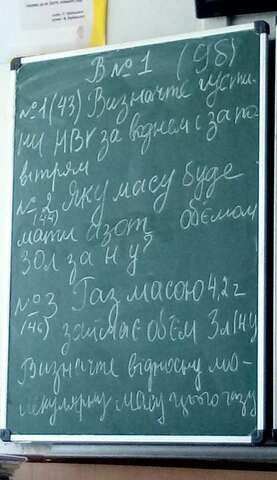 В №1 (9б)
№1 (43) Визначте густи-
ни HBr за воднем і за по-
вітрям
№2 Яку масу буде
мати азот об'ємом
30л за н у?
№3 Газ масою 4,2 г
займає об'єм 3л (н у
Визначте відносну мо-
лекулярну масу цього газу